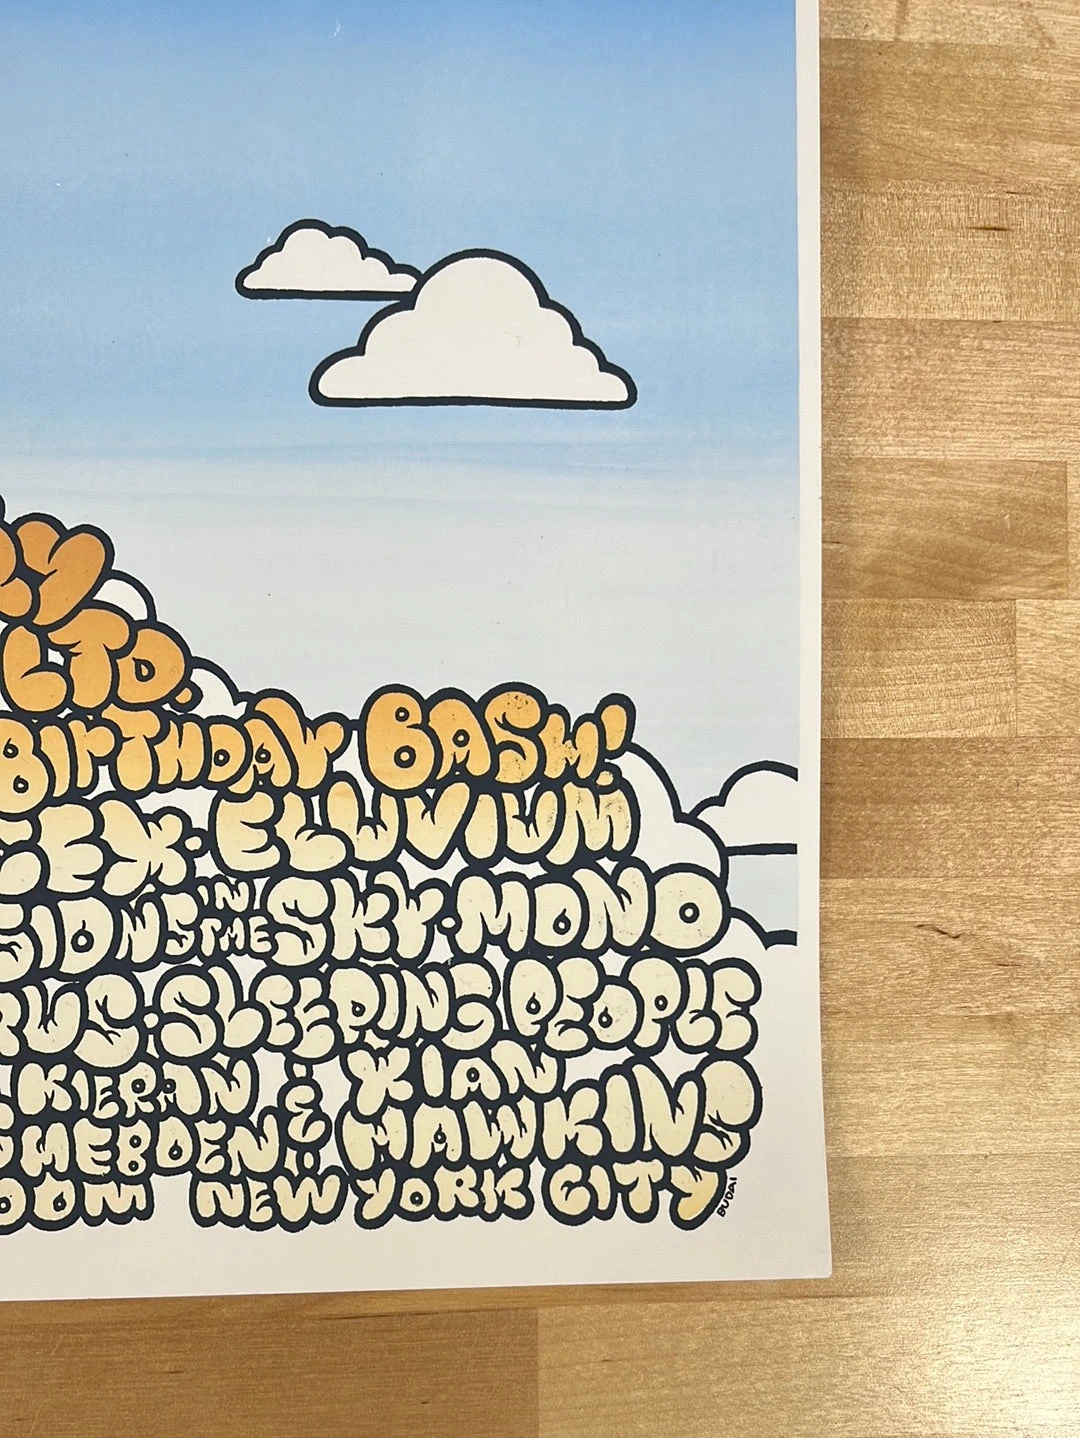 RY
LTD.
BIRTHDAY BASH!
EEX · ELUVIUM
SIONS IN THE SKY · MONO
RUS · SLEEPING PEOPLE
KIERAN & XIAN
HEBDEN HAWKINS
OOM NEW YORK CITY
BUDAI